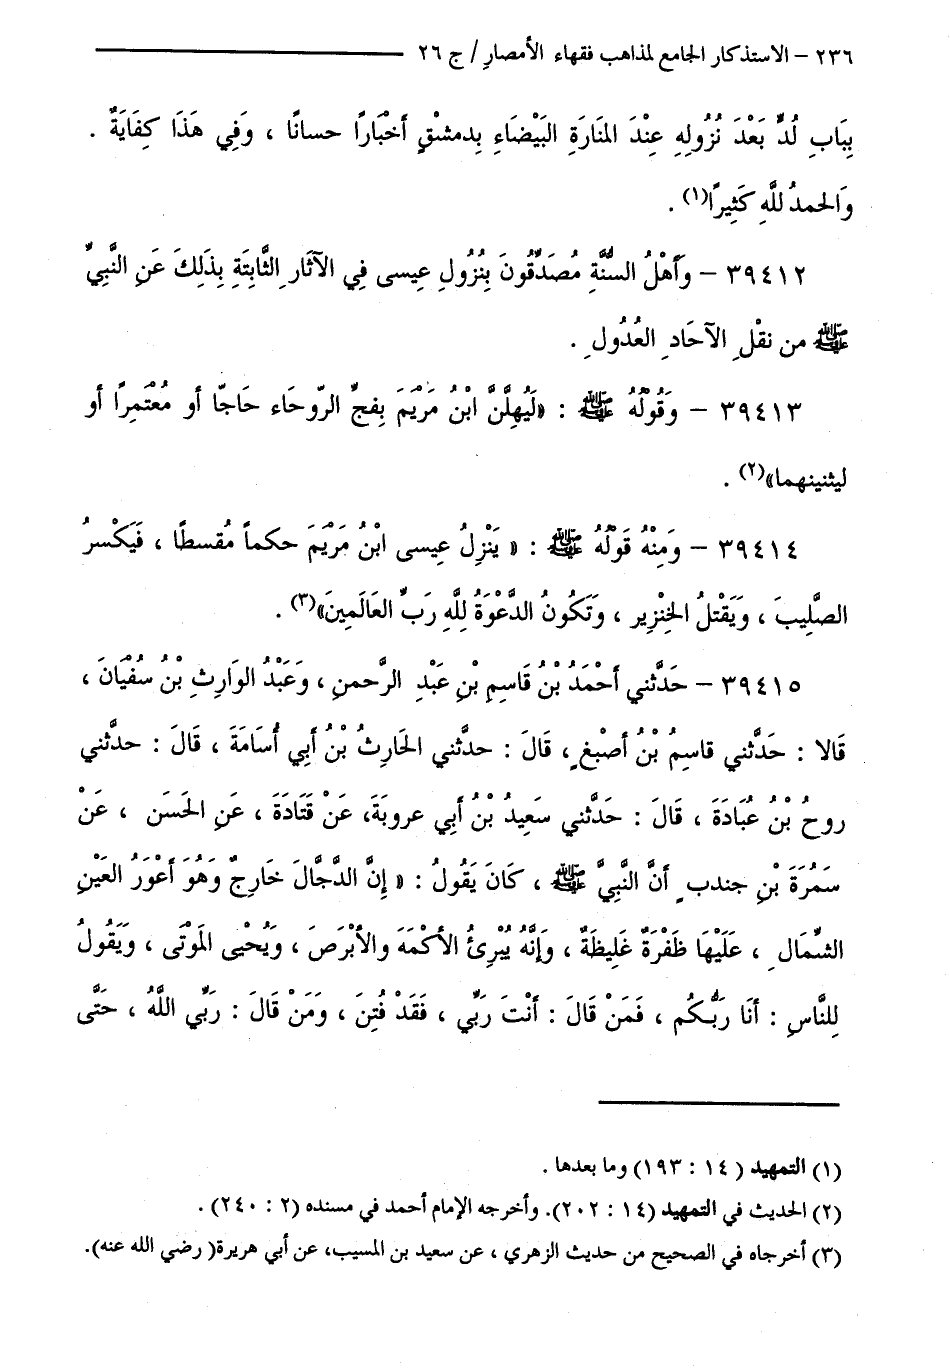 ٢٣٦ – الاستذكار الجامع لمذاهب فقهاء الأمصارِ / ج ٢٦
بِبَابِ لُدٍّ بَعْدَ نُزُولِهِ عِنْدَ المَنَارَةِ البَيْضَاءِ بِدمشْقٍ أخْبَارًا حسانًا ، وَفِي هَذَا كِفَايَةٌ .
وَالحمدُ للَّهِ كَثِيرًا(١) .
٣٩٤١٢ – وَأهْلُ السُّنَّةِ مُصَدِّقُونَ بِنُزُولِ عِيسى فِي الآثَارِ الثَّابِتَةِ بِذَلِكَ عَنِ النَّبِيِّ
ﷺ من نقْلِ الآحَادِ العُدُولِ .
٣٩٤١٣ – وَقُولُهُ ﷺ : «لَيُهِلَّنَّ ابْنُ مَرْيَمَ بِفجِّ الرّوحَاء حَاجّا أو مُعْتَمِرًا أو
ليثنينهما»(٢) .
٣٩٤١٤ – وَمِنْهُ قَوْلُهُ ﷺ : « يَنْزِلُ عِيسى ابنُ مَرْيَمَ حكماً مُقسطًا ، فَيَكْسرُ
الصَّلِيبَ ، وَيَقْتلُ الخِنْزِير ، وَتَكُونُ الدَّعْوَةُ لِلَّهِ رَبِّ العَالَمِينَ»(٣) .
٣٩٤١٥ – حَدَّثنِي أحْمَدُ بْنُ قَاسِمِ بْنِ عَبْدِ الرَّحمنِ ، وَعَبْدُ الوَارِثِ بْنُ سُفْيَانَ ،
قَالا : حَدَّثنِي قاسِمُ بْنُ أصْبغٍ ، قَالَ : حدَّثنِي الحَارِثُ بْنُ أبِي أُسَامَةَ ، قَالَ : حدَّثنِي
روحُ بْنُ عُبَادَةَ ، قَالَ : حَدَّثنِي سَعِيدُ بْنُ أبِي عروبَةَ، عَنْ قَتَادَةَ ، عَنِ الحَسَنِ ، عَنْ
سَمُرَةَ بْنِ جندبٍ أنَّ النَّبِيَّ ﷺ ، كَانَ يَقُولُ : « إنَّ الدَّجَّالَ خَارِجٌ وَهُوَ أعْوَرُ العَيْنِ
الشِّمَالِ ، عَلَيْهَا ظَفْرَةٌ غَلِيظَةٌ ، وَإنَّهُ يُبْرِئُ الأكْمَهَ والأبْرَصَ ، وَيُحْيى المَوْتَى ، وَيَقُولُ
لِلنَّاسِ : أنَا رَبُّـكُم ، فَمَنْ قَالَ : أنْتَ رَبِّي ، فَقَدْ فُتِنَ ، وَمَنْ قَالَ : رَبِّي اللَّهُ ، حَتَّى
(١) التمهيد ( ١٤ : ١٩٣) وما بعدها .
(٢) الحديث في التمهيد (١٤ : ٢٠٢). وأخرجه الإمام أحمد في مسنده (٢ : ٢٤٠) .
(٣) أخرجاه في الصحيح من حديث الزهري ، عن سعيد بن المسيب، عن أبي هريرة( رضي الله عنه).